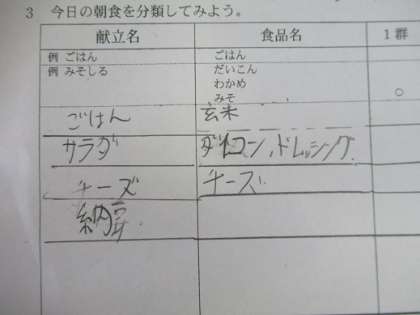 3 今日の朝食を分類してみよう。
献立名 食品名 1群
例 ごはん ごはん
例 みそしる だいこん
わかめ
みそ ○
ごはん 玄米
サラダ ダイコン、ドレッシング
チーズ チーズ
納豆